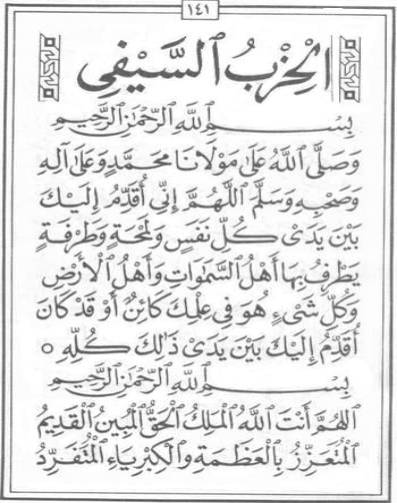 ١٤١
اَلْحِزْبُ السَّيْفِى
بِسْمِ اللَّهِ الرَّحْمٰنِ الرَّحِيمِ
وَصَلَّى اللَّهُ عَلَى مَوْلَانَا مُحَمَّدٍ وَعَلَى آلِهِ
وَصَحْبِهِ وَسَلَّمَ اللَّهُمَّ إِنِّى أُقَدِّمُ إِلَيْكَ
بَيْنَ يَدَىْ كُلِّ نَفَسٍ وَلَمْحَةٍ وَطَرْفَةٍ
يَطْرِفُ بِهَا أَهْلُ السَّمٰوَاتِ وَأَهْلُ الْأَرْضِ
وَكُلِّ شَىْءٍ هُوَ فِى عِلْمِكَ كَائِنٌ أَوْ قَدْ كَانَ
أُقَدِّمُ إِلَيْكَ بَيْنَ يَدَىْ ذٰلِكَ كُلِّهِ ○
بِسْمِ اللَّهِ الرَّحْمٰنِ الرَّحِيمِ
اَللّٰهُمَّ أَنْتَ اللَّهُ الْمَلِكُ الْحَقُّ الْمُبِينُ الْقَدِيمُ
الْمُتَعَزِّزُ بِالْعَظَمَةِ وَالْكِبْرِيَاءِ الْمُتَفَرِّدُ